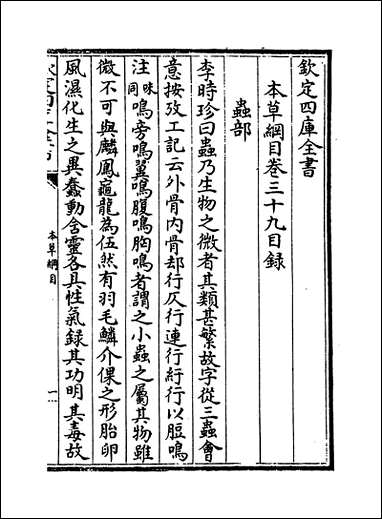 欽定四庫全書
本草綱目卷三十九目錄
蟲部
李時珍曰蟲乃生物之微者其類甚繁故字從三蟲會
意按攷工記云外骨内骨却行仄行連行紆行以脰鳴
注味同鳴旁鳴翼鳴腹鳴胸鳴者謂之小蟲之屬其物雖
微不可與麟鳳龜龍為伍然有羽毛鱗介倮之形胎卵
風濕化生之異蠢動含靈各具性氣錄其功明其毒故
本草綱目
一